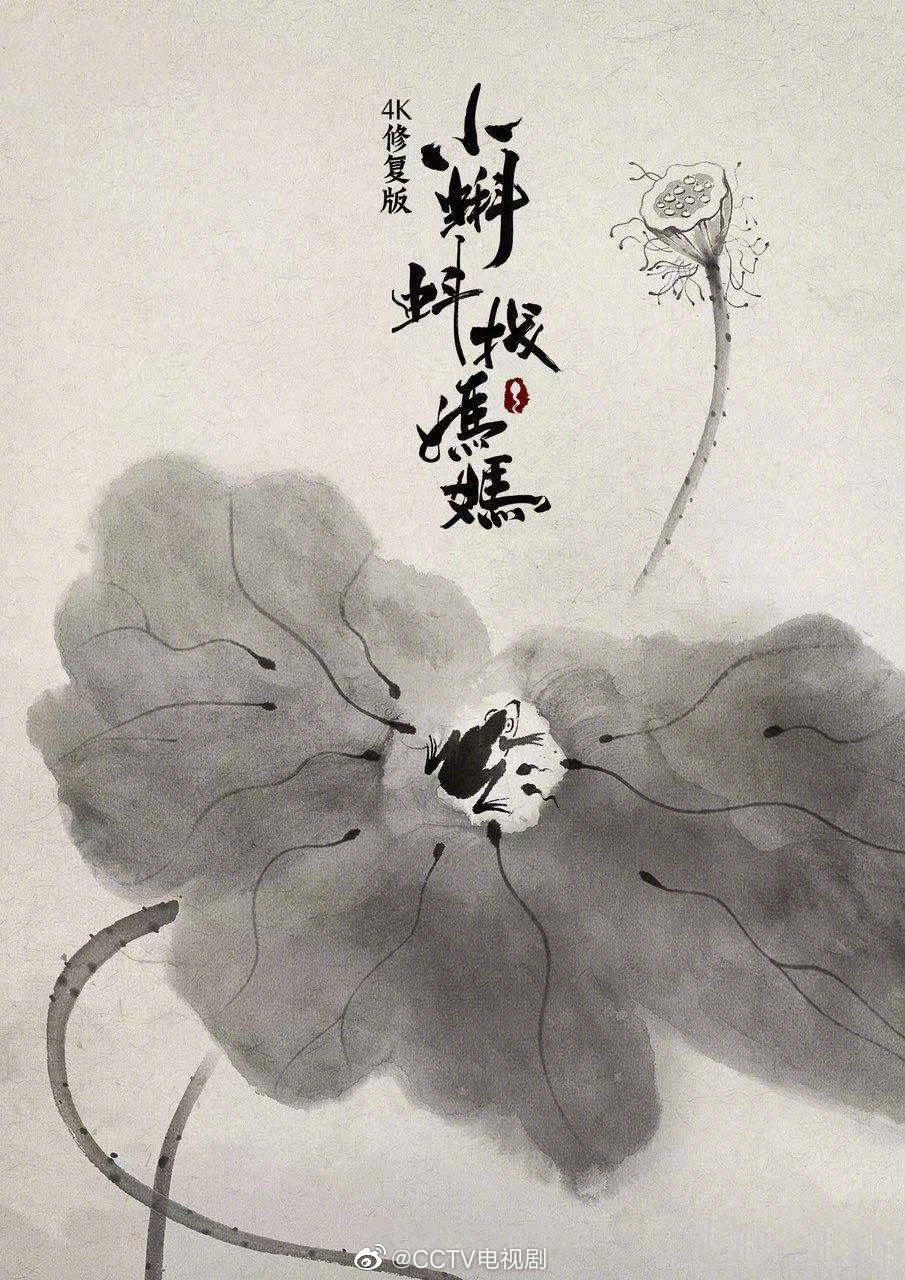 小蝌蚪找媽媽
4K修复版
@CCTV电视剧